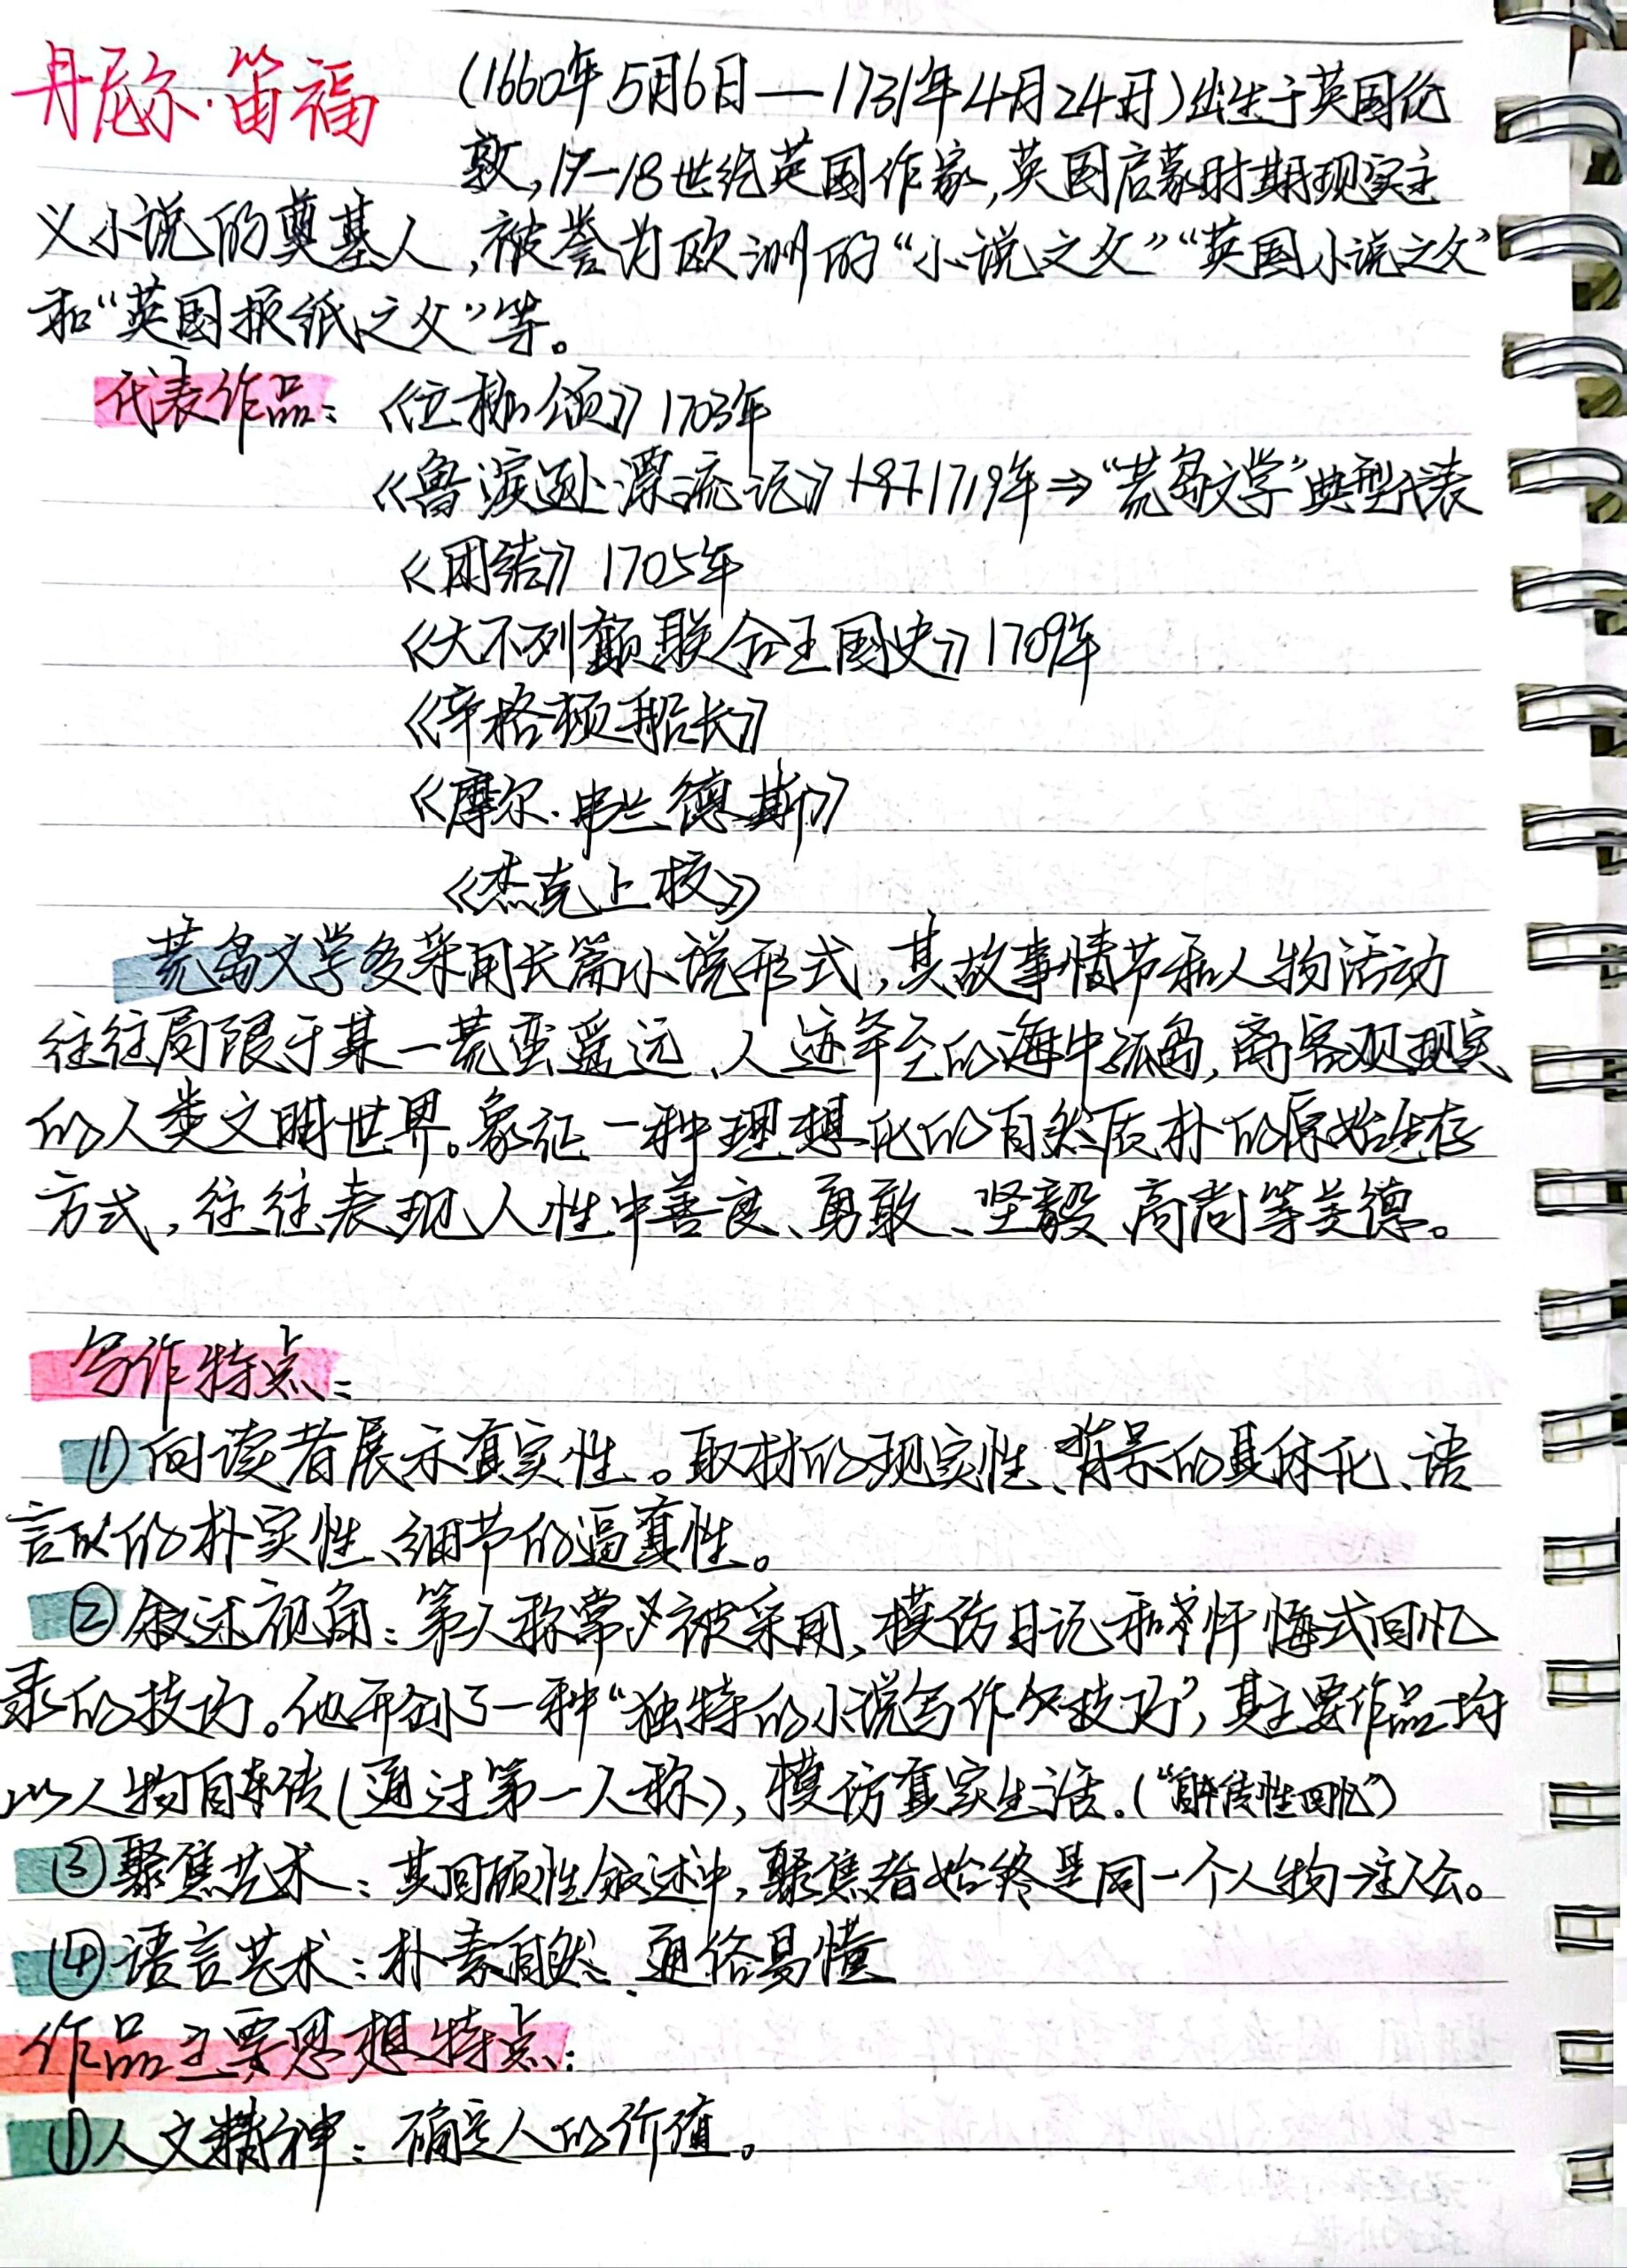 丹尼尔·笛福
(1660年5月6日—1731年4月24日)出生于英国伦
敦,17-18世纪英国作家,英国启蒙时期现实主
义小说的奠基人,被誉为欧洲的“小说之父”“英国小说之父”
和“英国报纸之父”等。
代表作品:《立枷颂》1703年
《鲁滨逊漂流记》1719年⇒“荒岛文学”典型代表
《团结》1705年
《大不列颠联合王国史》1709年
《辛格顿船长》
《摩尔·弗兰德斯》
《杰克上校》
荒岛文学多采用长篇小说形式,其故事情节和人物活动
往往局限于某一荒蛮遥远、人迹罕至的海中孤岛,离客观现实
的人类文明世界。象征一种理想化的自然质朴的原始生存
方式,往往表现人性中善良、勇敢、坚毅、高尚等美德。
写作特点:
①向读者展示真实性。取材的现实性、背景的具体化、语
言的朴实性、细节的逼真性。
②叙述视角:第一人称常被采用,模仿日记和忏悔式回忆
录的技巧。他开创了一种“独特的小说写作技巧”,其主要作品均
以人物自传(通过第一人称),模仿真实生活.(“自传性回忆”)
③聚焦艺术:其回顾性叙述中,聚焦者始终是同一个人物
④语言艺术:朴素自然、通俗易懂
作品主要思想特点:
①人文精神:确定人的价值。